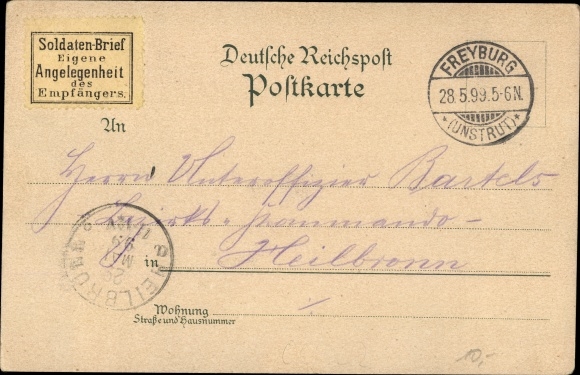 Soldaten-Brief
Eigene
Angelegenheit
des
Empfängers.
Deutsche Reichspost
Postkarte
FREYBURG
28.5.99.5-6N.
* (UNSTRUT) *
An
Herrn Unteroffizier Bartels
Bezirks-Kommando-
in Heilbronn
HEILBRONN
MAI
99
Wohnung
Straße und Hausnummer
10,-